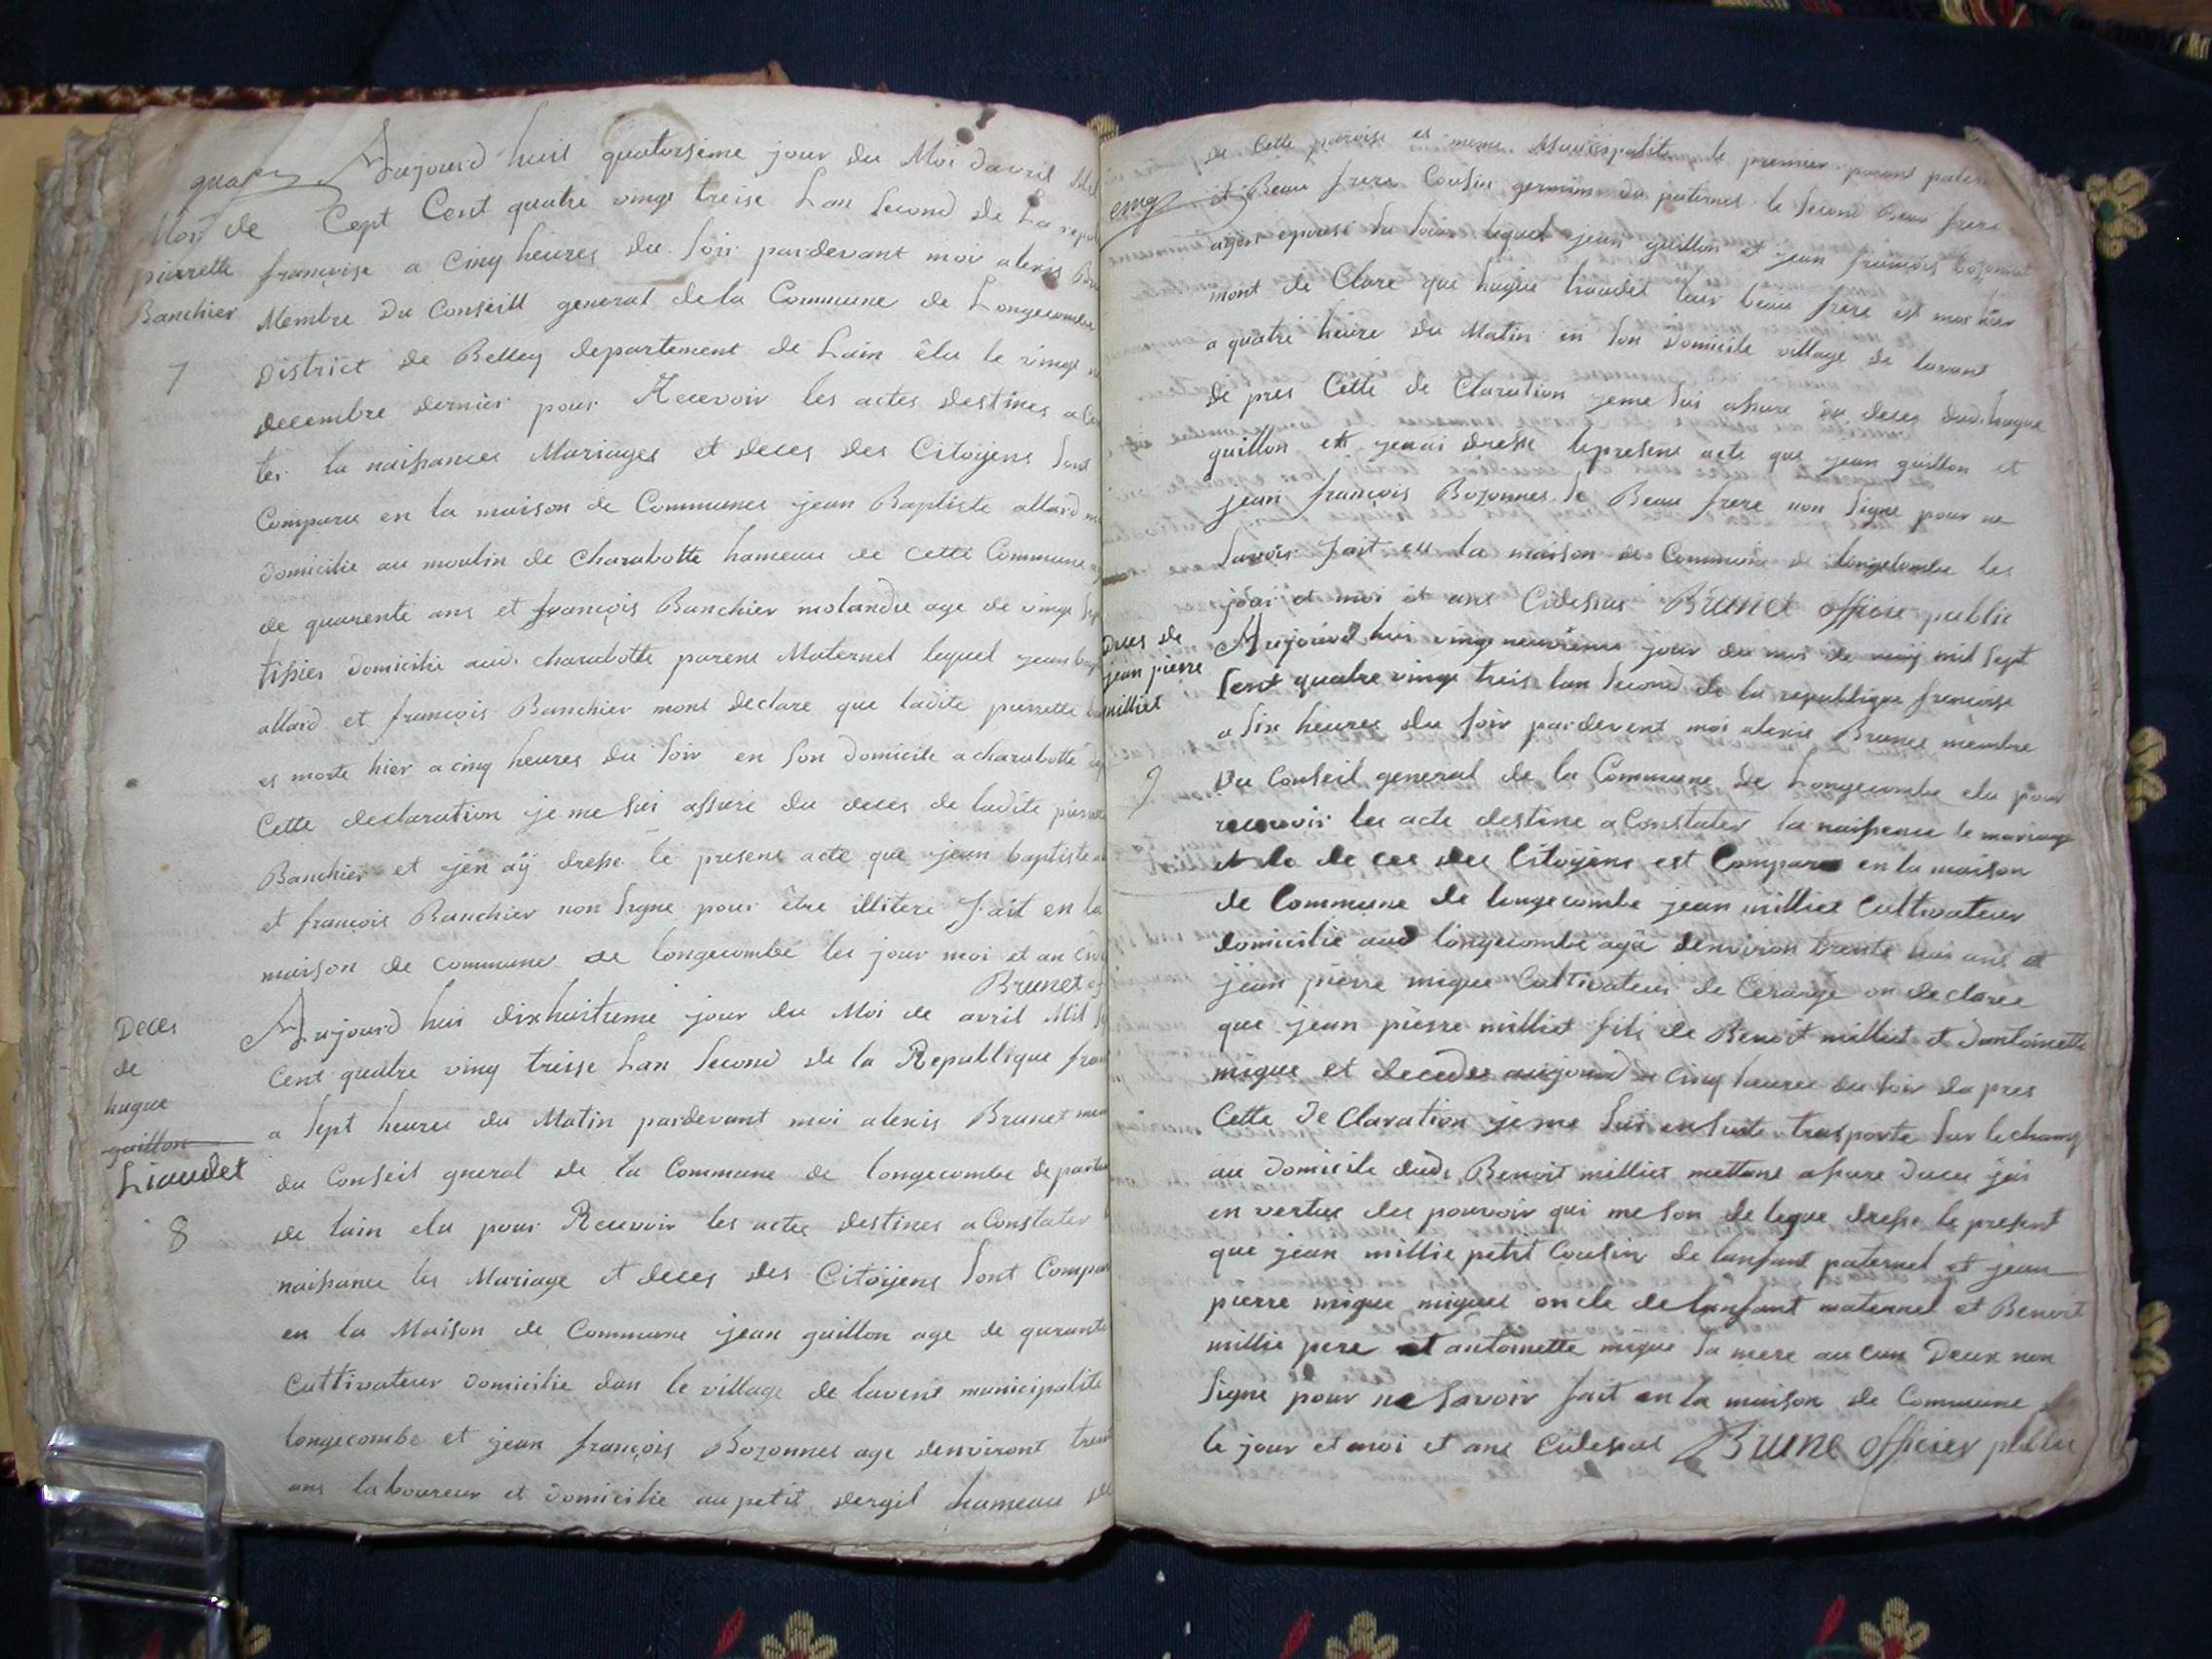 Mort de
pierrette
Banchier
7
Aujourd huit quatorsieme jour du Moi davril
Cept Cent quatre vingt treise Lan Second de La
françoise a Cinq heures du Soir pardevant moi alexis
Membre Du Conseill general de la Commune de Longecombe
District de Belley departement de Lain élu le vingt
decembre dernier pour Recevoir les actes destines a
ter la naissances Mariages et deces des Citoÿens Sont
Comparu en la maison de Communes jean Baptiste allard
domicilie au moulin de Charabotte hameau de cette Commune
de quarente ans et françois Banchier molandie age de vingt
tissier domicilie aud. charabotte parent Maternel lequel jean
allard et françois Banchier mont declare que ladite pierrette
es morte hier a cinq heures du Soir en Son domicile a charabotte
Cette declaration je me sui assure du deces de ladite
Banchier et jen aÿ dresse le present acte que jean baptiste
et françois Banchier non Signe pour être illitere fait en la
maison de communes de longecombe les jour moi et an
Brunet
Deces
de
hugue
guillon
Liaudet
8
Aujourd hui dixhuitieme jour du Moi de avril Mil
Cent quatre ving treise Lan Second de la Republique
a Sept heures du Matin pardevant moi alexis Brunet
du Conseil gneral de la Commune de longecombe
de lain elu pour Recevoir les actes destines a Constater
naissance les Mariage et deces des Citoÿens Sont
en la Maison de Commune jean guillon age de quarante
Cultivateur domicilie dan le village de lavent municipalite
longecombe et jean françois Bozonnet age denviront
ans laboureur et domicilie au petit dergil hameau
de Cette paroise et meme Municipalite le premier parant
cinq
et Beau frere Cousin germain du paternel le Second Beau frere
ayant epouse Sa Soeur lequel jean guillon et jean françois
mont de Clare que hugue liaudet leur beau frere est mor hier
a quatre heure du Matin en Son domicile village de lavant
de pres Cette de Claration jeme Sui assure du deces dud. hugue
guillon et jenai dresse lepresent acte que jean guillon et
jean françois Bozonnet Se Beau frere non Signe pour ne
Savoir fait en la maison de Commune de longecombe les
jour et moi et ans Cidessus Brunet officie public
Deces de
jean pierre
milliet
9
Aujourd hui vingt neuvieme jour du moi de mil Sept
Sent quatre vingt treis lan Second de la republique françoise
a Six heures du Soir pardevent moi alexis Brunet membre
Du Conseil general de la Commune de Longecombe elu pour
recevoir les acte destine a Constater la naissence le mariage
et le de ces des Citoÿens est Comparu en la maison
de Commune de longecombe jean milliet Cultivateur
domicilie aud longecombe agé denviron trente huit ans et
jean pierre mique Cultivateur de on declaree
que jean pierre milliet fils de Benoit milliet et dantoinette
mique et decedee aujourd a cinq heures du Soir da pres
Cette de Claration je me Sui en Suite trasporte Sur le champ
au domicile dud. Benoit milliet mettant assure jai
en vertue des pouvoir qui me Son delegue dresse le present
que jean millie petit Cousin de lanfant paternel et jean
pierre mique miquel oncle de lanfant maternel et Benoit
millie pere et antoinette mique Sa mere au cun Deux non
Signe pour ne Savoir fait en la maison de Commune
le jour et moi et ans Cidessus Brune officier public